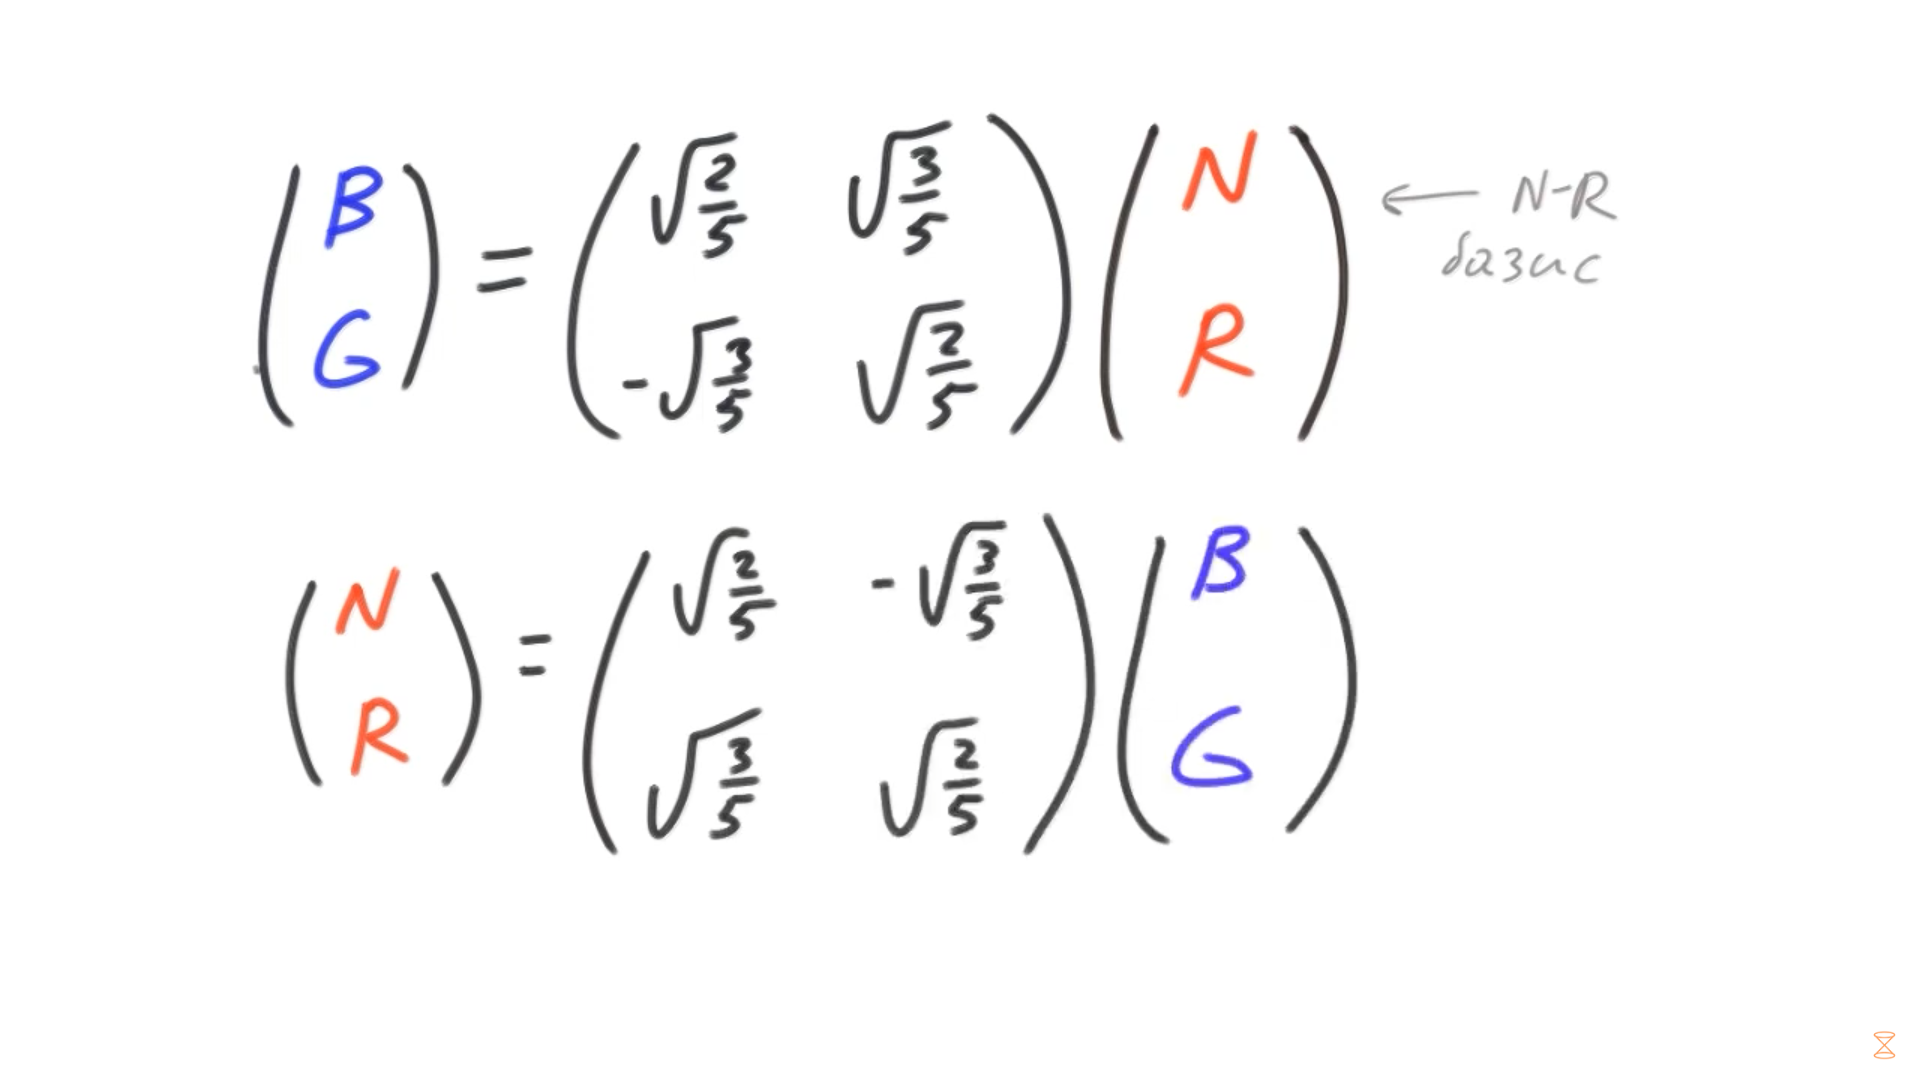 (B G) = (√2/5 √3/5 -√3/5 √2/5) (N R) ← N-R базис
(N R) = (√2/5 -√3/5 √3/5 √2/5) (B G)